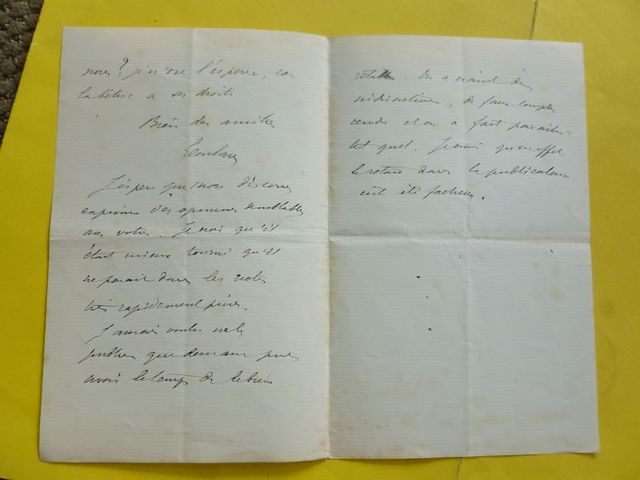 nous? je n'ose l'espérer, car
la bêtise a ses droits
Bien des amitiés
J'espère que mon discours
exprime des opinions semblables
aux votres. Je crois qu'il
était mieux tourné qu'il
ne parait dans les notes
très rapidement prises.
J'aurais voulu ne le
publier que demain pour
avoir le temps de le bien
On a craint des
indiscrétions, de faux comptes
rendus et on a fait paraitre
tel quel. Je crois qu'en effet
le retard dans la publication
eut été facheux.